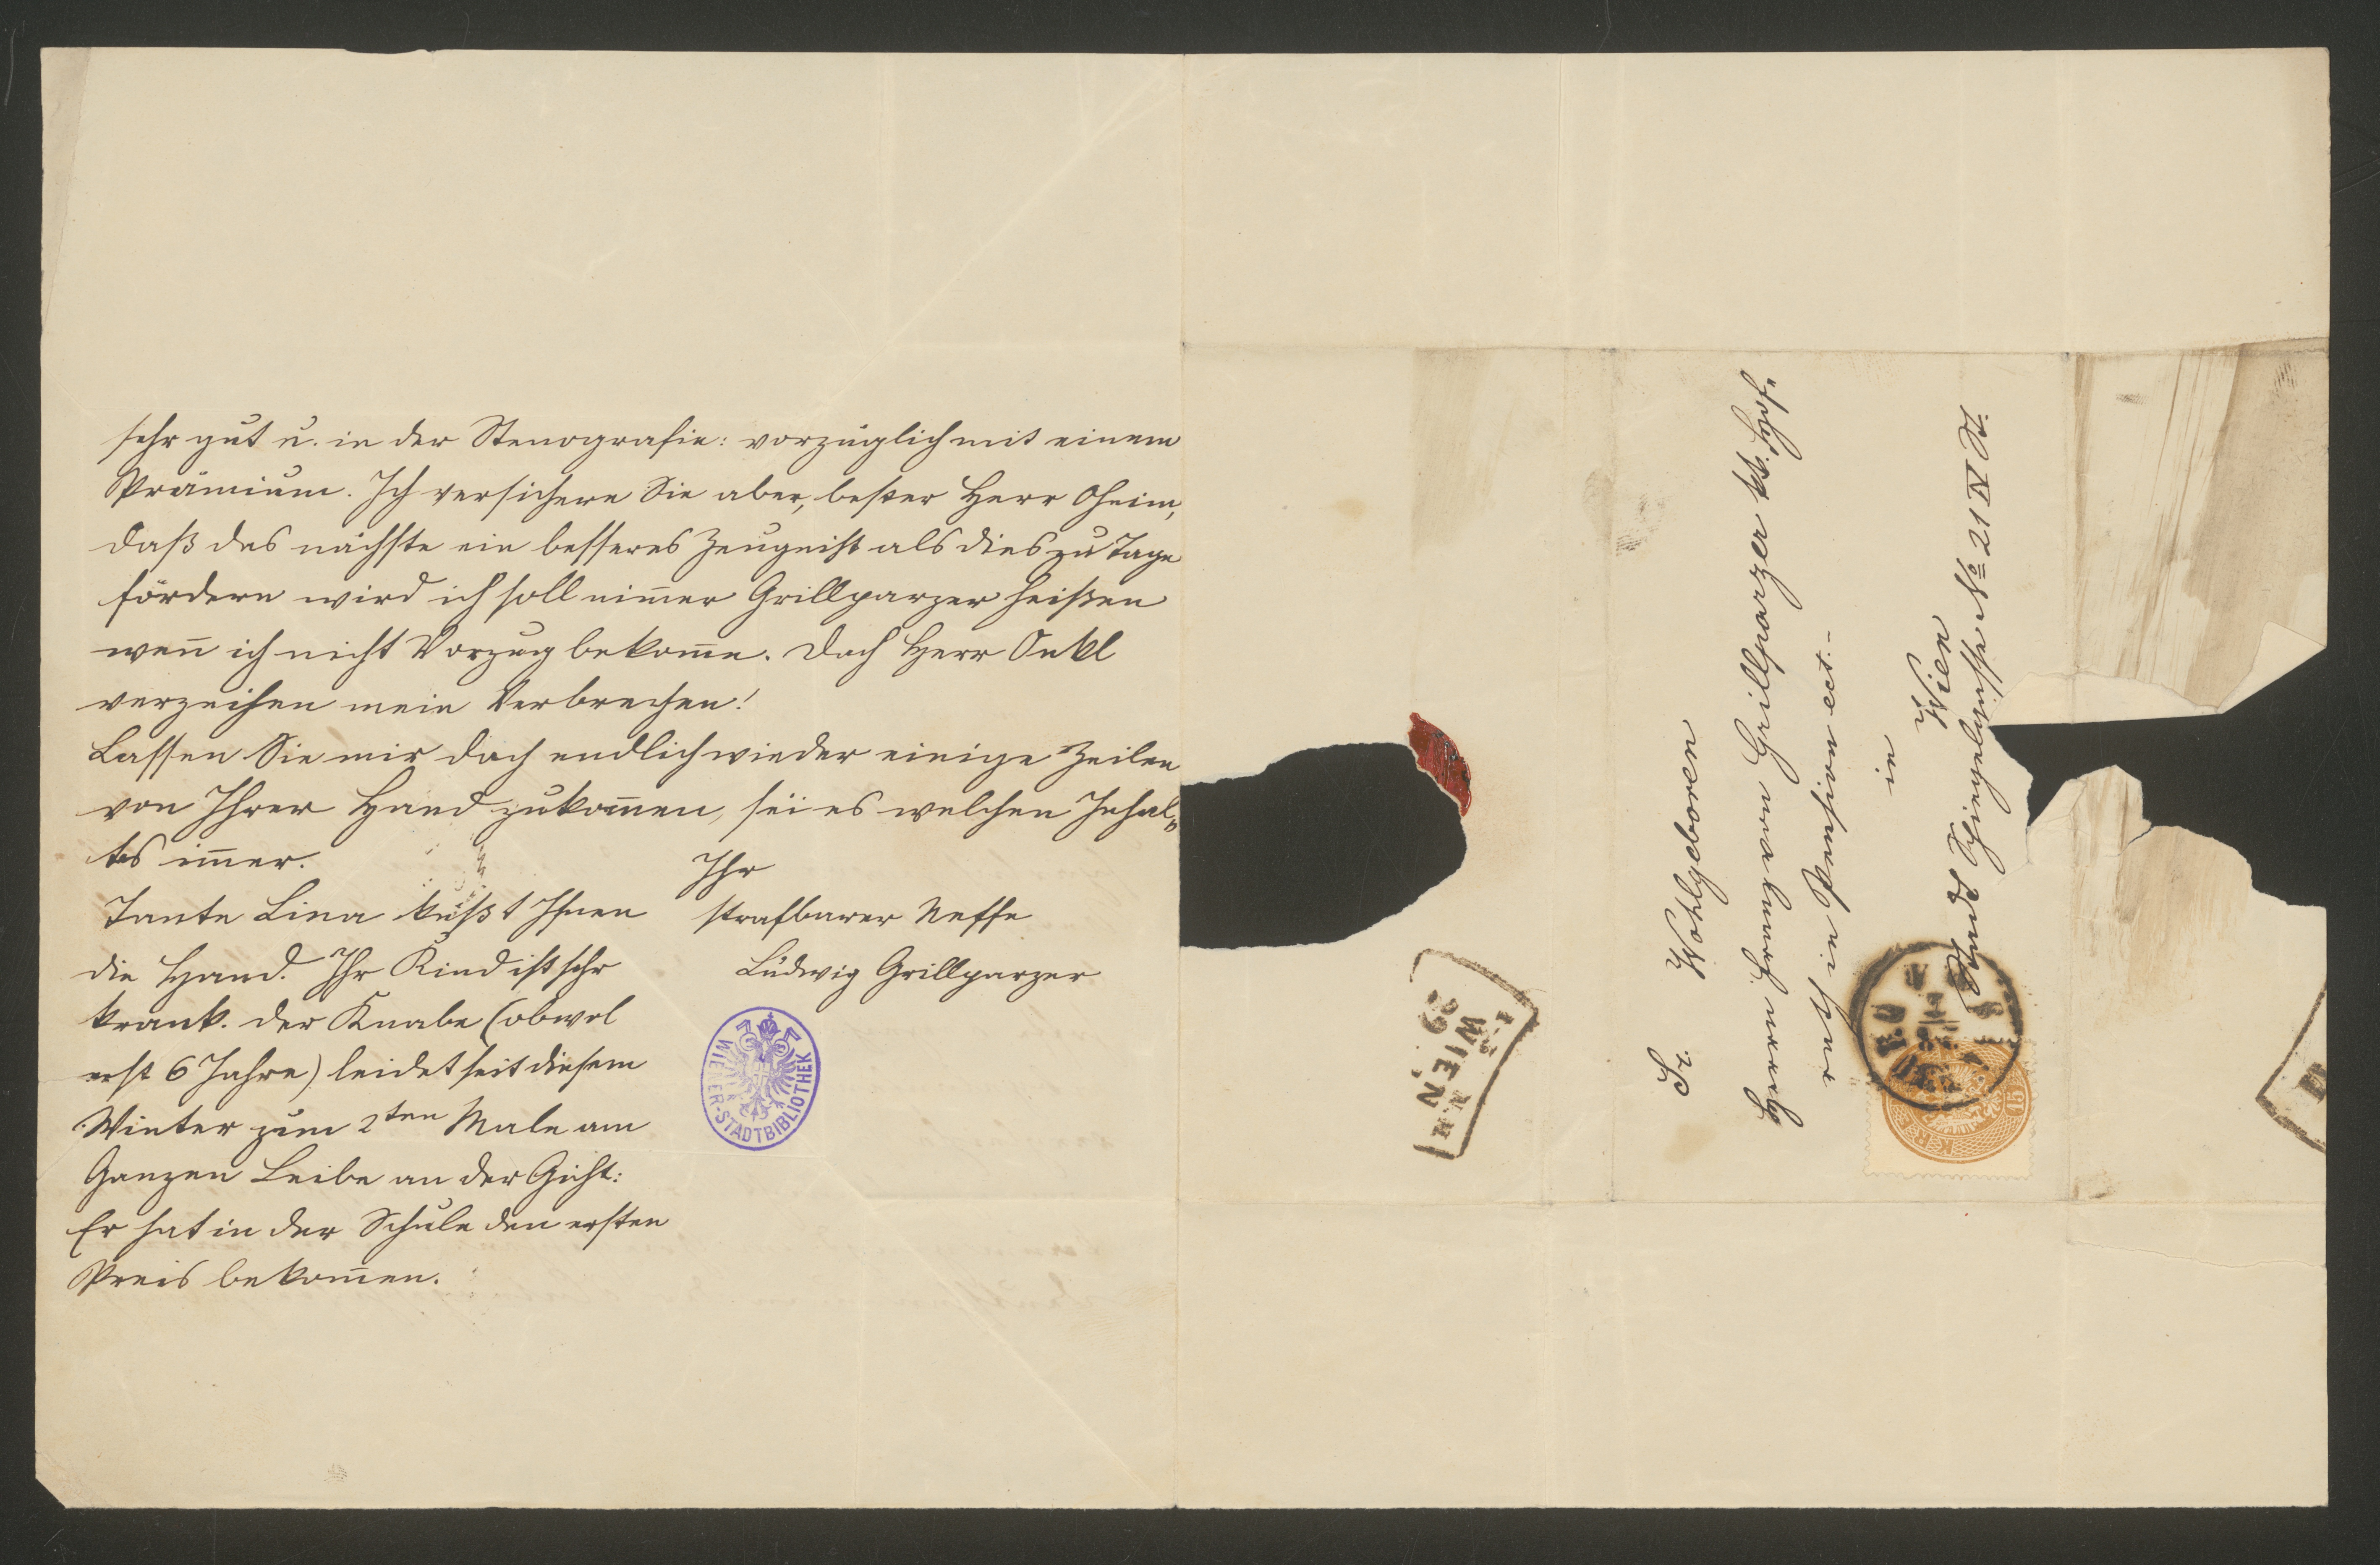 sehr gut u. in der Stenografie: vorzüglich mit einem
Prämium. Ich versichere Sie aber, bester Herr Oheim,
daß das nächste ein besseres Zeugnißt als dies zu Tage
fördern wird ich soll nim̅er Grillparzer heißen
wen̅ ich nicht Vorzug bekom̅e. Doch Herr Onkl
verzeihen mein Verbrechen!
Lassen Sie mir doch endlich wieder einige Zeilen
von Ihrer Hand zukom̅en, sei es welchen Inhal„
tes im̅er.
Ihr
strafbarer Neffe
Ludwig Grillparzer
Tante Lina küßt Ihnen
die Hand. Ihr Kind ist sehr
krank. Der Knabe (obwol
erst 6 Jahre) leidet seit diesem
Winter zum 2ten Male am
Ganzen Leibe an der Gicht:
Er hat in der Schule den ersten
Preis bekom̅en.
WIENER-STADTBIBLIOTHEK
Sr. Wohlgeboren
Herrn Franz von Grillparzer kk. Hof„
rath in Pension ect.–
in
Wien
Stadt Spiegelgasse No 21 IV St.
WIEN
15